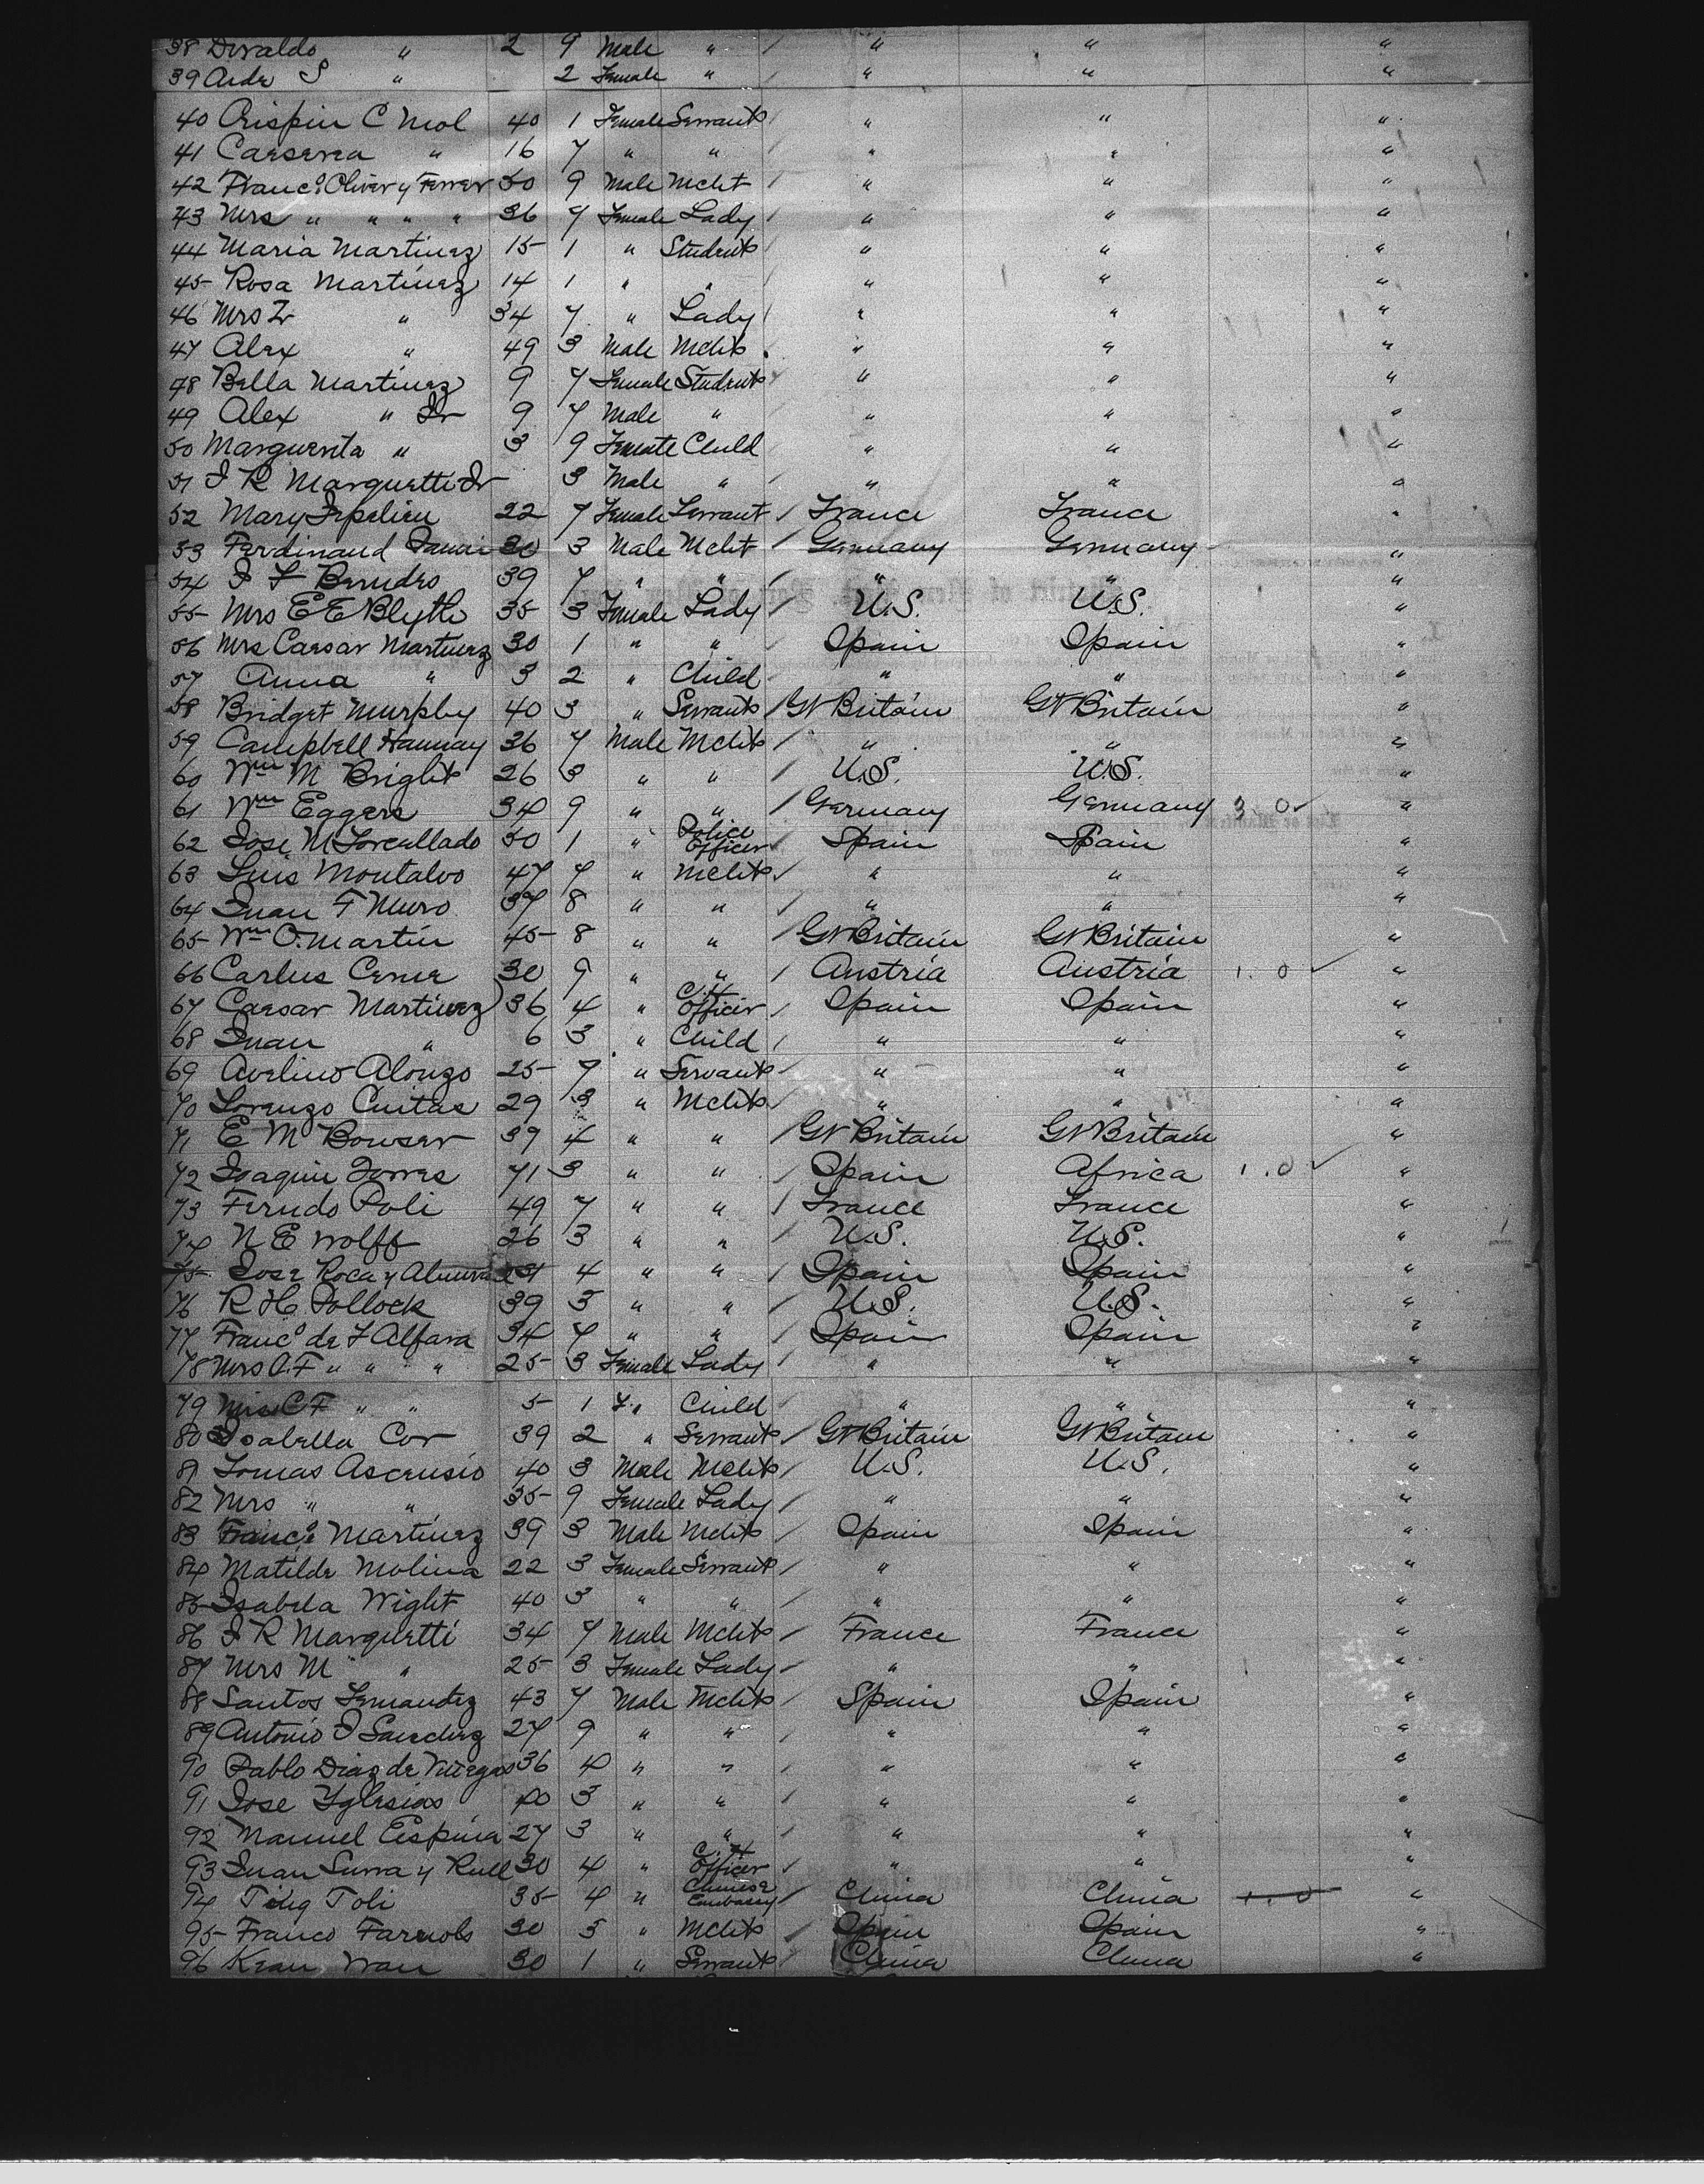 38 Osvaldo " 2 9 Male " / " " "
39 Aida S " 2 Female " / " " "
40 Crispin C Mol 40 1 Female Servant / " " "
41 Caeserea " 16 7 " " / " " "
42 Franco Oliver y Ferrer 50 9 Male Mcht / " " "
43 Mrs " " " " 36 7 Female Lady / " " "
44 Maria Martinez 15 1 " Student / " " "
45 Rosa Martinez 14 1 " " / " " "
46 Mrs " 34 7 " Lady / " " "
47 Alex " 49 3 Male Mcht " " "
48 Bella Martinez 9 7 Female Student " " "
49 Alex " Jr 9 7 Male " " " "
50 Marguerita " 3 9 Female Child " " "
51 J R Marquetti Jr 3 Male " / " " "
52 Mary 22 7 Female Servant / France France "
53 Ferdinand 30 3 Male Mcht / Germany Germany "
54 J F Berndes 39 7 " " / " " "
55 Mrs E E Blythe 35 3 Female Lady / U.S. U.S. "
56 Mrs Caesar Martinez 30 1 " " / Spain Spain "
57 Anna " 3 2 " Child " " "
58 Bridget Murphy 40 3 " Servant / Gt Britain Gt Britain "
59 Campbell Hannay 36 7 Male Mcht / " " "
60 Wm M Bright 26 3 " " / U.S. U.S. "
61 Wm Eggers 34 9 " " / Germany Germany 3 0 ✓ "
62 Jose M 50 1 " Police Officer / Spain Spain "
63 Luis Montalvo 47 7 " Mcht / " " "
64 Juan F Muro 37 8 " " / " " "
65 Wm O. Martin 45 8 " " Gt Britain Gt Britain "
66 Carlus 30 9 " " / Austria Austria 1. 0 ✓ "
67 Caesar Martinez 36 4 " C.H Officer / Spain Spain "
68 Juan " 6 3 " Child / " " "
69 Avelino Alonzo 25 7 " Servant " " "
70 Lorenzo Cuitas 29 3 " Mcht " " "
71 E M Bowser 39 4 " " / Gt Britain Gt Britain "
72 Joaquin Torres 71 3 " " Spain Africa 1. 0 ✓ "
73 Ferndo Poli 49 7 " " / France France "
74 N E Wolff 26 3 " " U.S. U.S. "
75 Jose Roca y 4 " " / Spain Spain "
76 R H Pollock 39 3 " " / U.S. U.S. "
77 Franco de F Alfara 34 7 " " / Spain Spain "
78 Mrs A.F " " " 25 3 Female Lady / " " "
79 Miss C F " " 5 1 F. " Child " " "
80 Isabella Cor 39 2 " Servant / Gt Britain Gt Britain "
81 Tomas Ascensio 40 3 Male Mcht / U.S. U.S. "
82 Mrs " " 35 9 Female Lady / " " "
83 Franco Martinez 39 3 Male Mcht / Spain Spain "
84 Matilde Molina 22 3 Female Servant / " " "
85 Isabela Wight 40 3 " " / " " "
86 J R Marquetti 34 7 Male Mcht / France France "
87 Mrs M " 25 3 Female Lady / " " "
88 Santos Fernandez 43 7 Male Mcht / Spain Spain "
89 Antonio J Sanchez 27 9 " " / " " "
90 Pablo Diaz de Villegas 36 4 " " / " " "
91 Jose Yglesias 40 3 " " / " " "
92 Manuel Espina 27 3 " " / " " "
93 Juan Surra y Rull 30 4 " C.H Officer / " " "
94 Toli 35 4 " Chinese Embassy / China China 1. 0 "
95 Franco Farnols 30 3 " Mcht / Spain Spain "
96 Kean Wan 30 1 " Servant / China China "